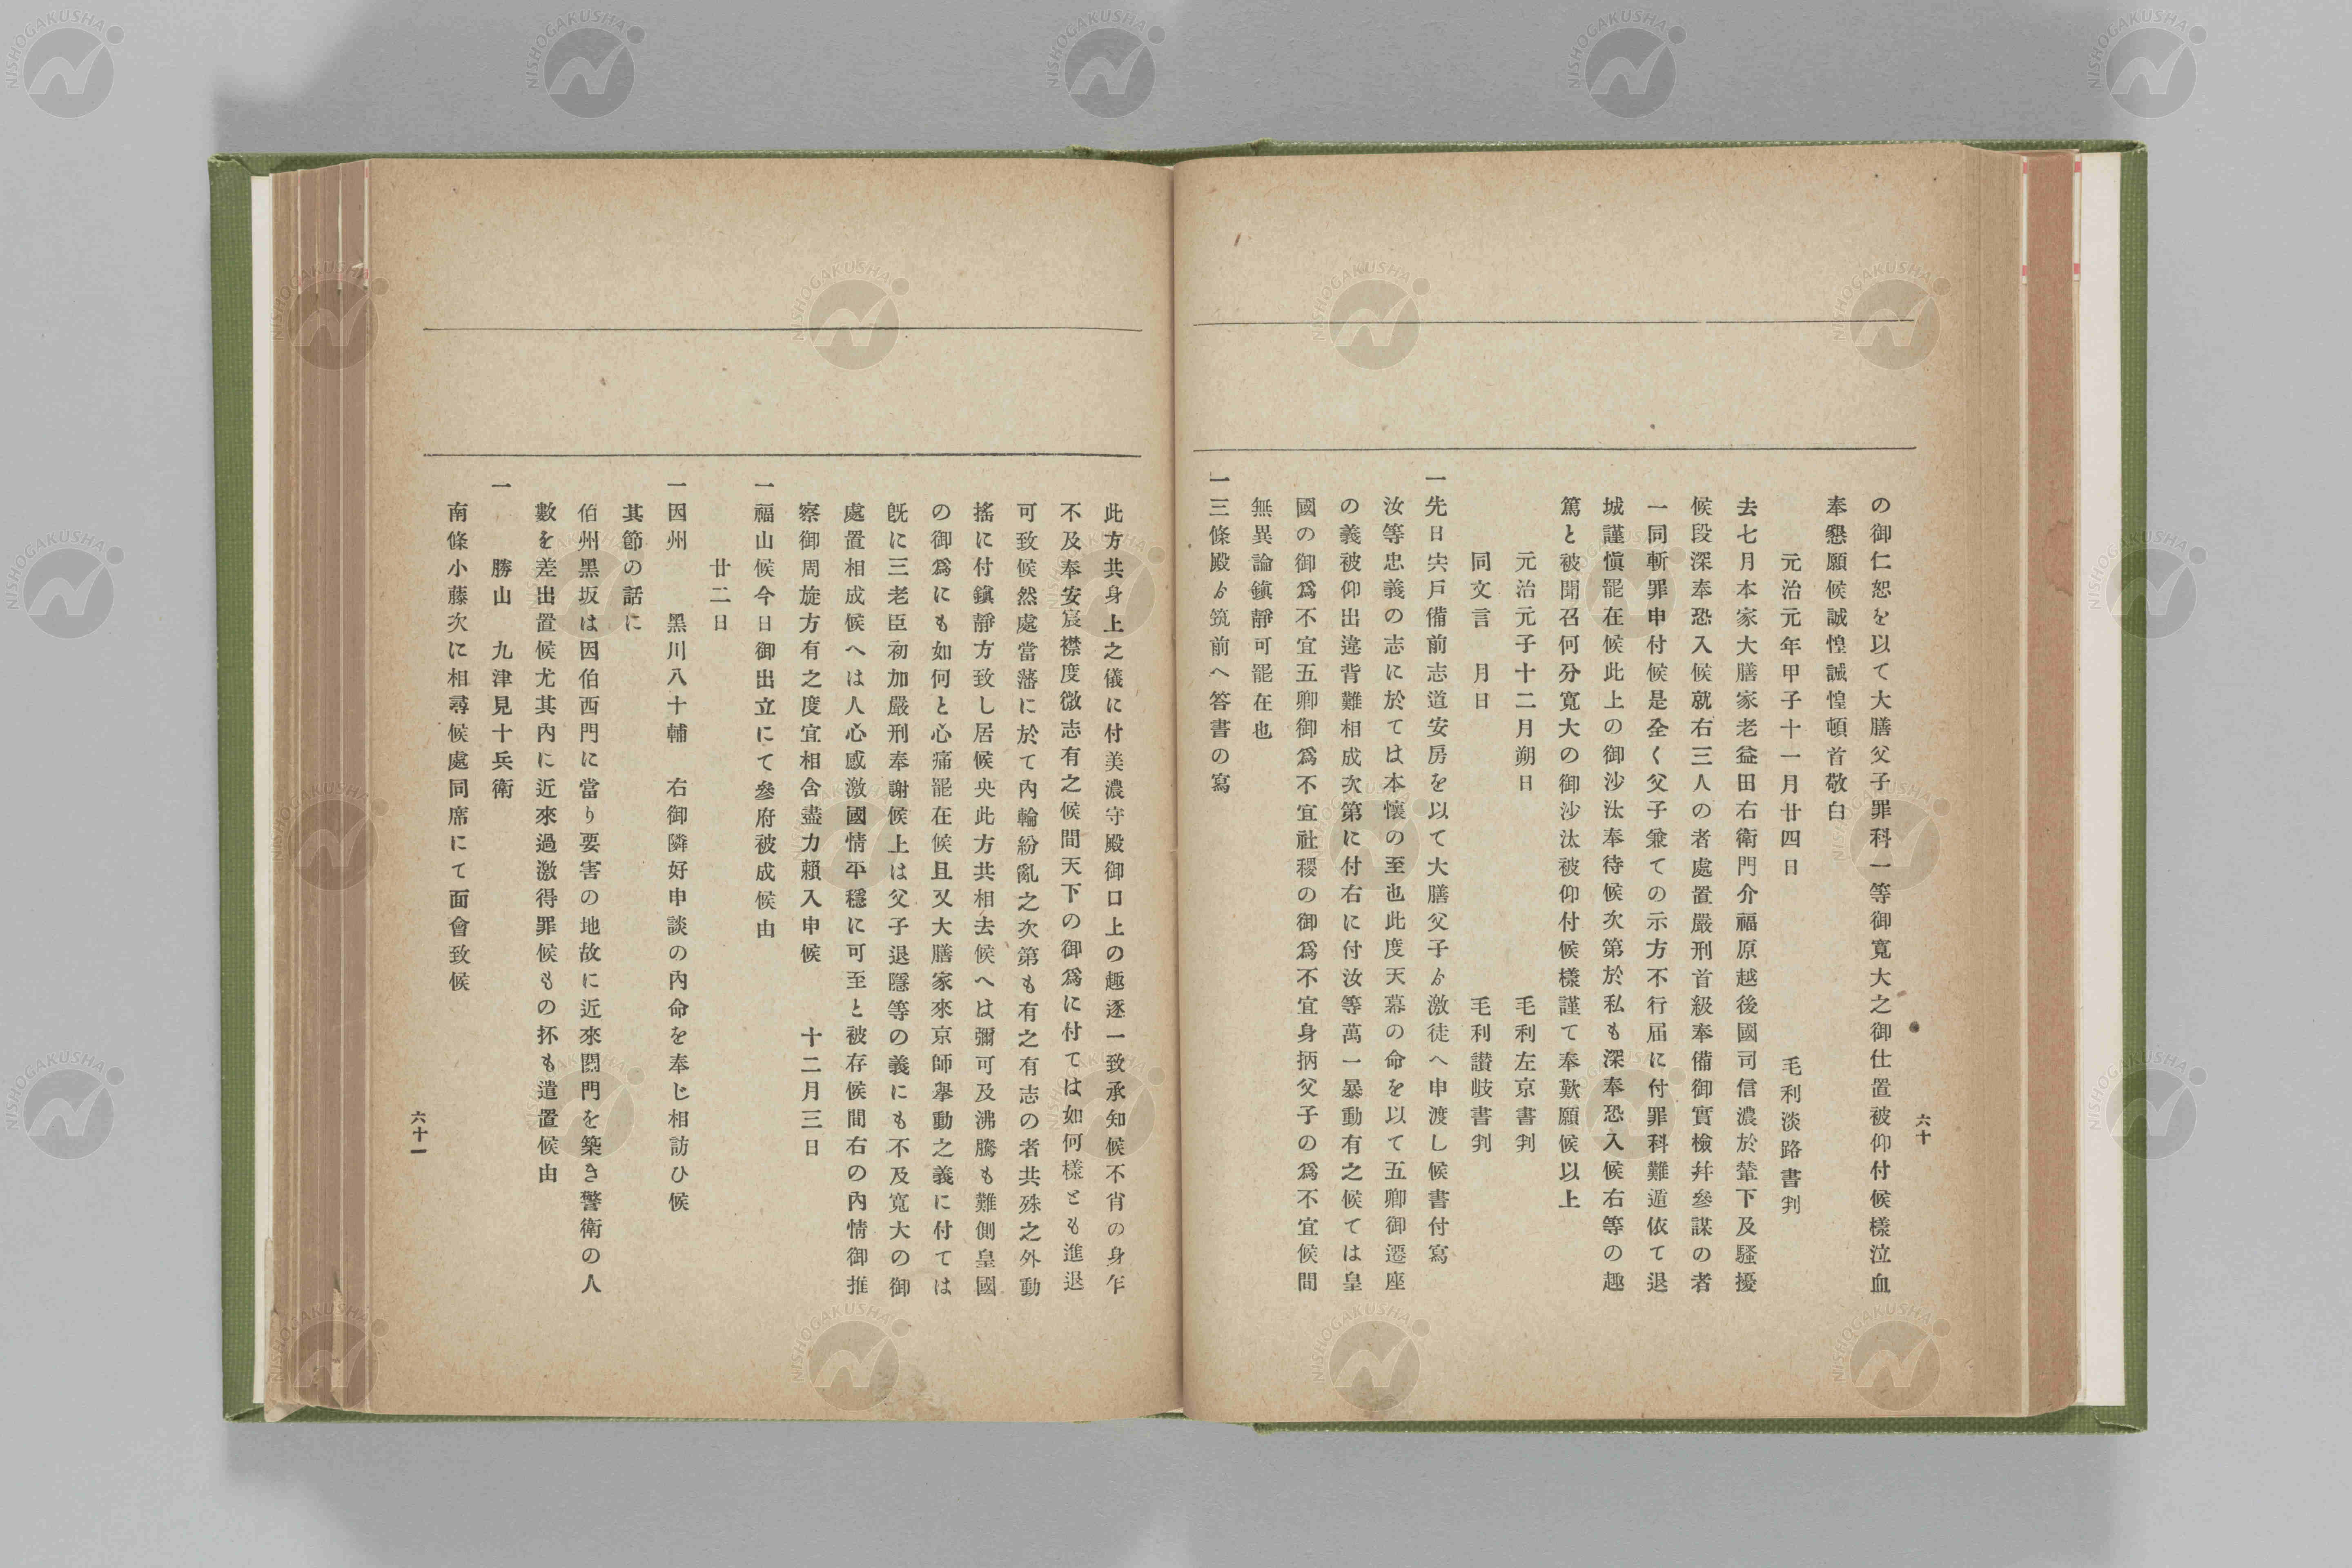 の御仁恕を以て大膳父子罪科一等御寬大之御仕置被仰付候樣泣血
奉懇願候誠惶誠惶頓首敬白
元治元年甲子十一月廿四日　毛利淡路書判
去七月本家大膳家老益田右衛門介福原越後國司信濃於輦下及騷擾
候段深奉恐入候就右三人の者處置嚴刑首級奉備御實檢幷參謀の者
一同斬罪申付候是全く父子兼ての示方不行届に付罪科難遁依て退
城謹愼罷在候此上の御沙汰奉待候次第於私も深奉恐入候右等の趣
篤と被聞召何分寬大の御沙汰被仰付候樣謹て奉歎願候以上
元治元子十二月朔日　毛利左京書判
同文言　月日　毛利讃岐書判
一先日宍戶備前志道安房を以て大膳父子ゟ激徒へ申渡し候書付寫
汝等忠義の志に於ては本懷の至也此度天幕の命を以て五卿御遷座
の義被仰出違背難相成次第に付右に付汝等萬一暴動有之候ては皇
國の御爲不宜五卿御爲不宜社稷の御爲不宜身柄父子の爲不宜候間
無異論鎭靜可罷在也
一三條殿ゟ筑前へ答書の寫
六十
此方共身上之儀に付美濃守殿御口上の趣逐一致承知候不肖の身乍
不及奉安宸襟度微志有之候間天下の御爲に付ては如何樣とも進退
可致候然處當藩に於て內輪紛亂之次第も有之有志の者共殊之外動
搖に付鎭靜方致し居候央此方共相去候へは彌可及沸騰も難側皇國
の御爲にも如何と心痛罷在候且又大膳家來京師擧動之義に付ては
旣に三老臣初加嚴刑奉謝候上は父子退隱等の義にも不及寬大の御
處置相成候へは人心感激國情平穩に可至と被存候間右の內情御推
察御周旋方有之度宜相含盡力賴入申候　十二月三日
一福山候今日御出立にて參府被成候由
廿二日
一因州　黑川八十輔　右御隣好申談の內命を奉じ相訪ひ候
其節の話に
伯州黑坂は因伯西門に當り要害の地故に近來關門を築き警衛の人
數を差出置候尤其內に近來過激得罪候もの抔も遣置候由
一　勝山　九津見十兵衛
南條小藤次に相尋候處同席にて面會致候
六十一
NISHOGAKUSHA